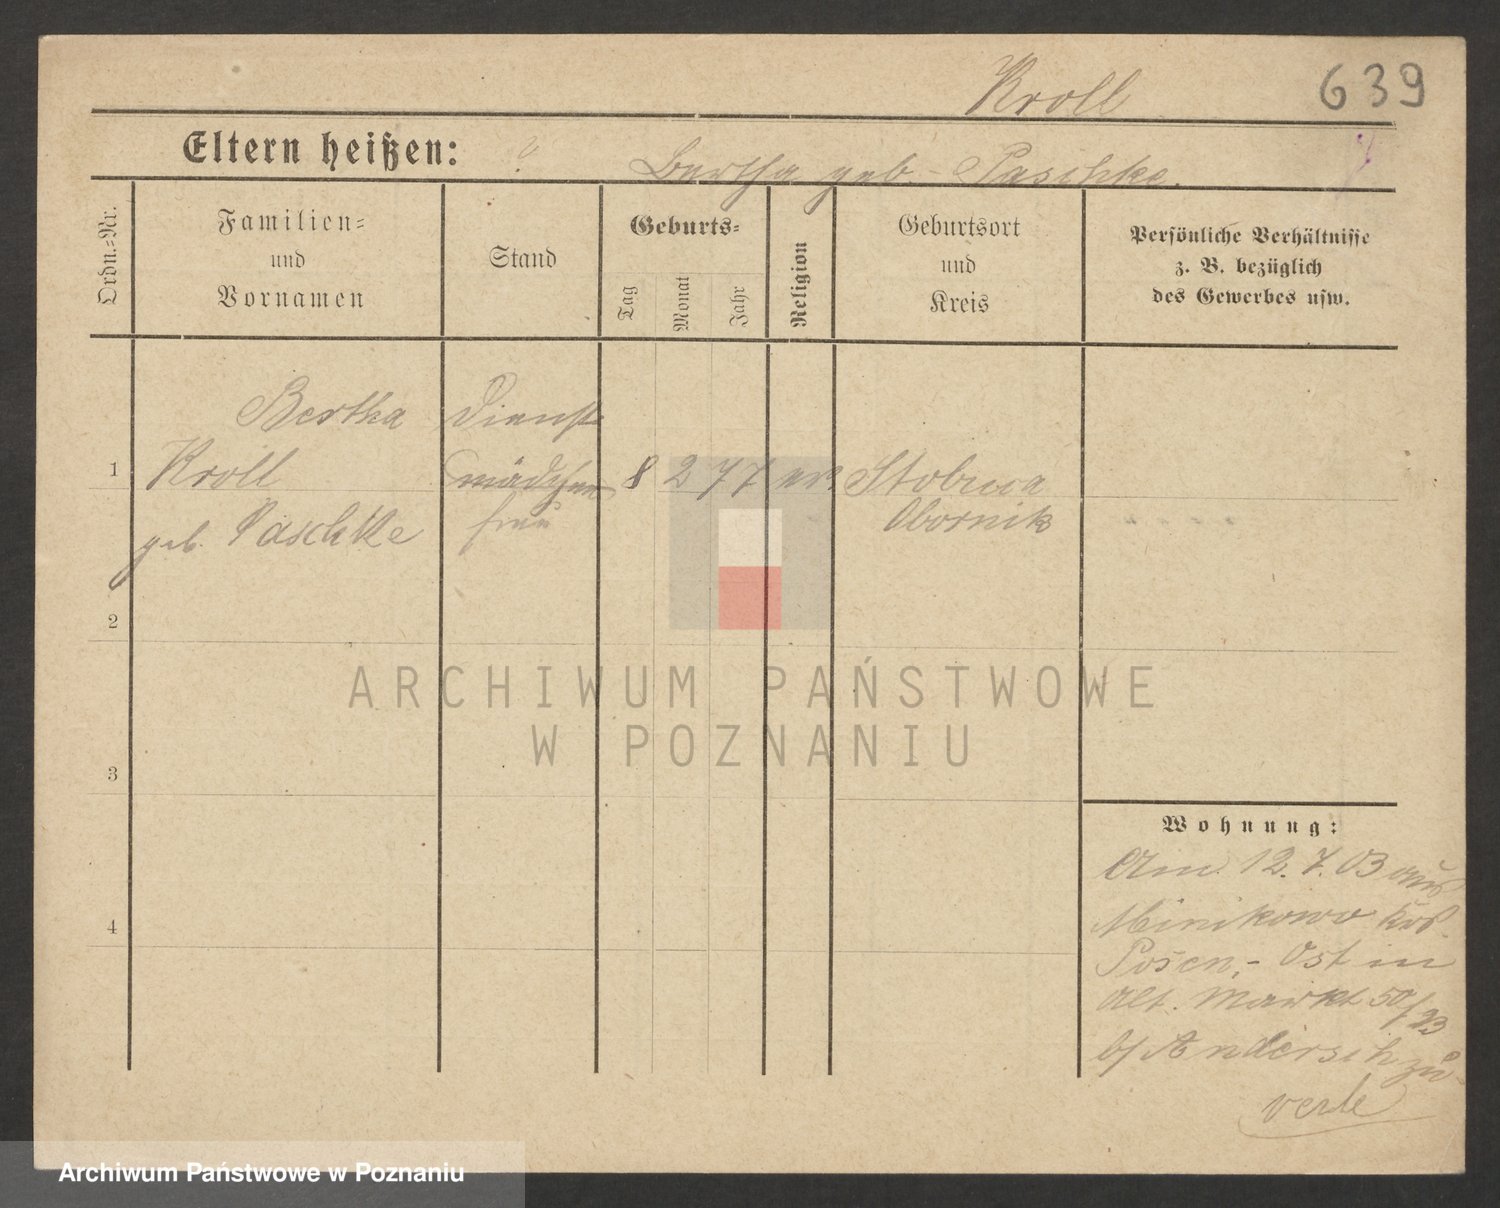 Kroll
639
Eltern heißen: ?
Bertha geb. - Paschke.
Ordn.-Nr.
Familien-
und
Vornamen
Stand
Geburts-
Tag
Monat
Jahr
Religion
Geburtsort
und
Kreis
Persönliche Verhältnisse
z. B. bezüglich
des Gewerbes usw.
Bertha
Kroll
geb. Paschke
Dienst
mädchen
frau
1
8
2
77
ev.
Stobnica
Obornik
2
3
4
Wohnung:
Am 12.7.03 aus
Minikowo Krs.
Posen,- Ost in
Alt. Markt 50/
b/ Andersch zu
ARCHIWUM PAŃSTWOWE
W POZNANIU
Archiwum Państwowe w Poznaniu